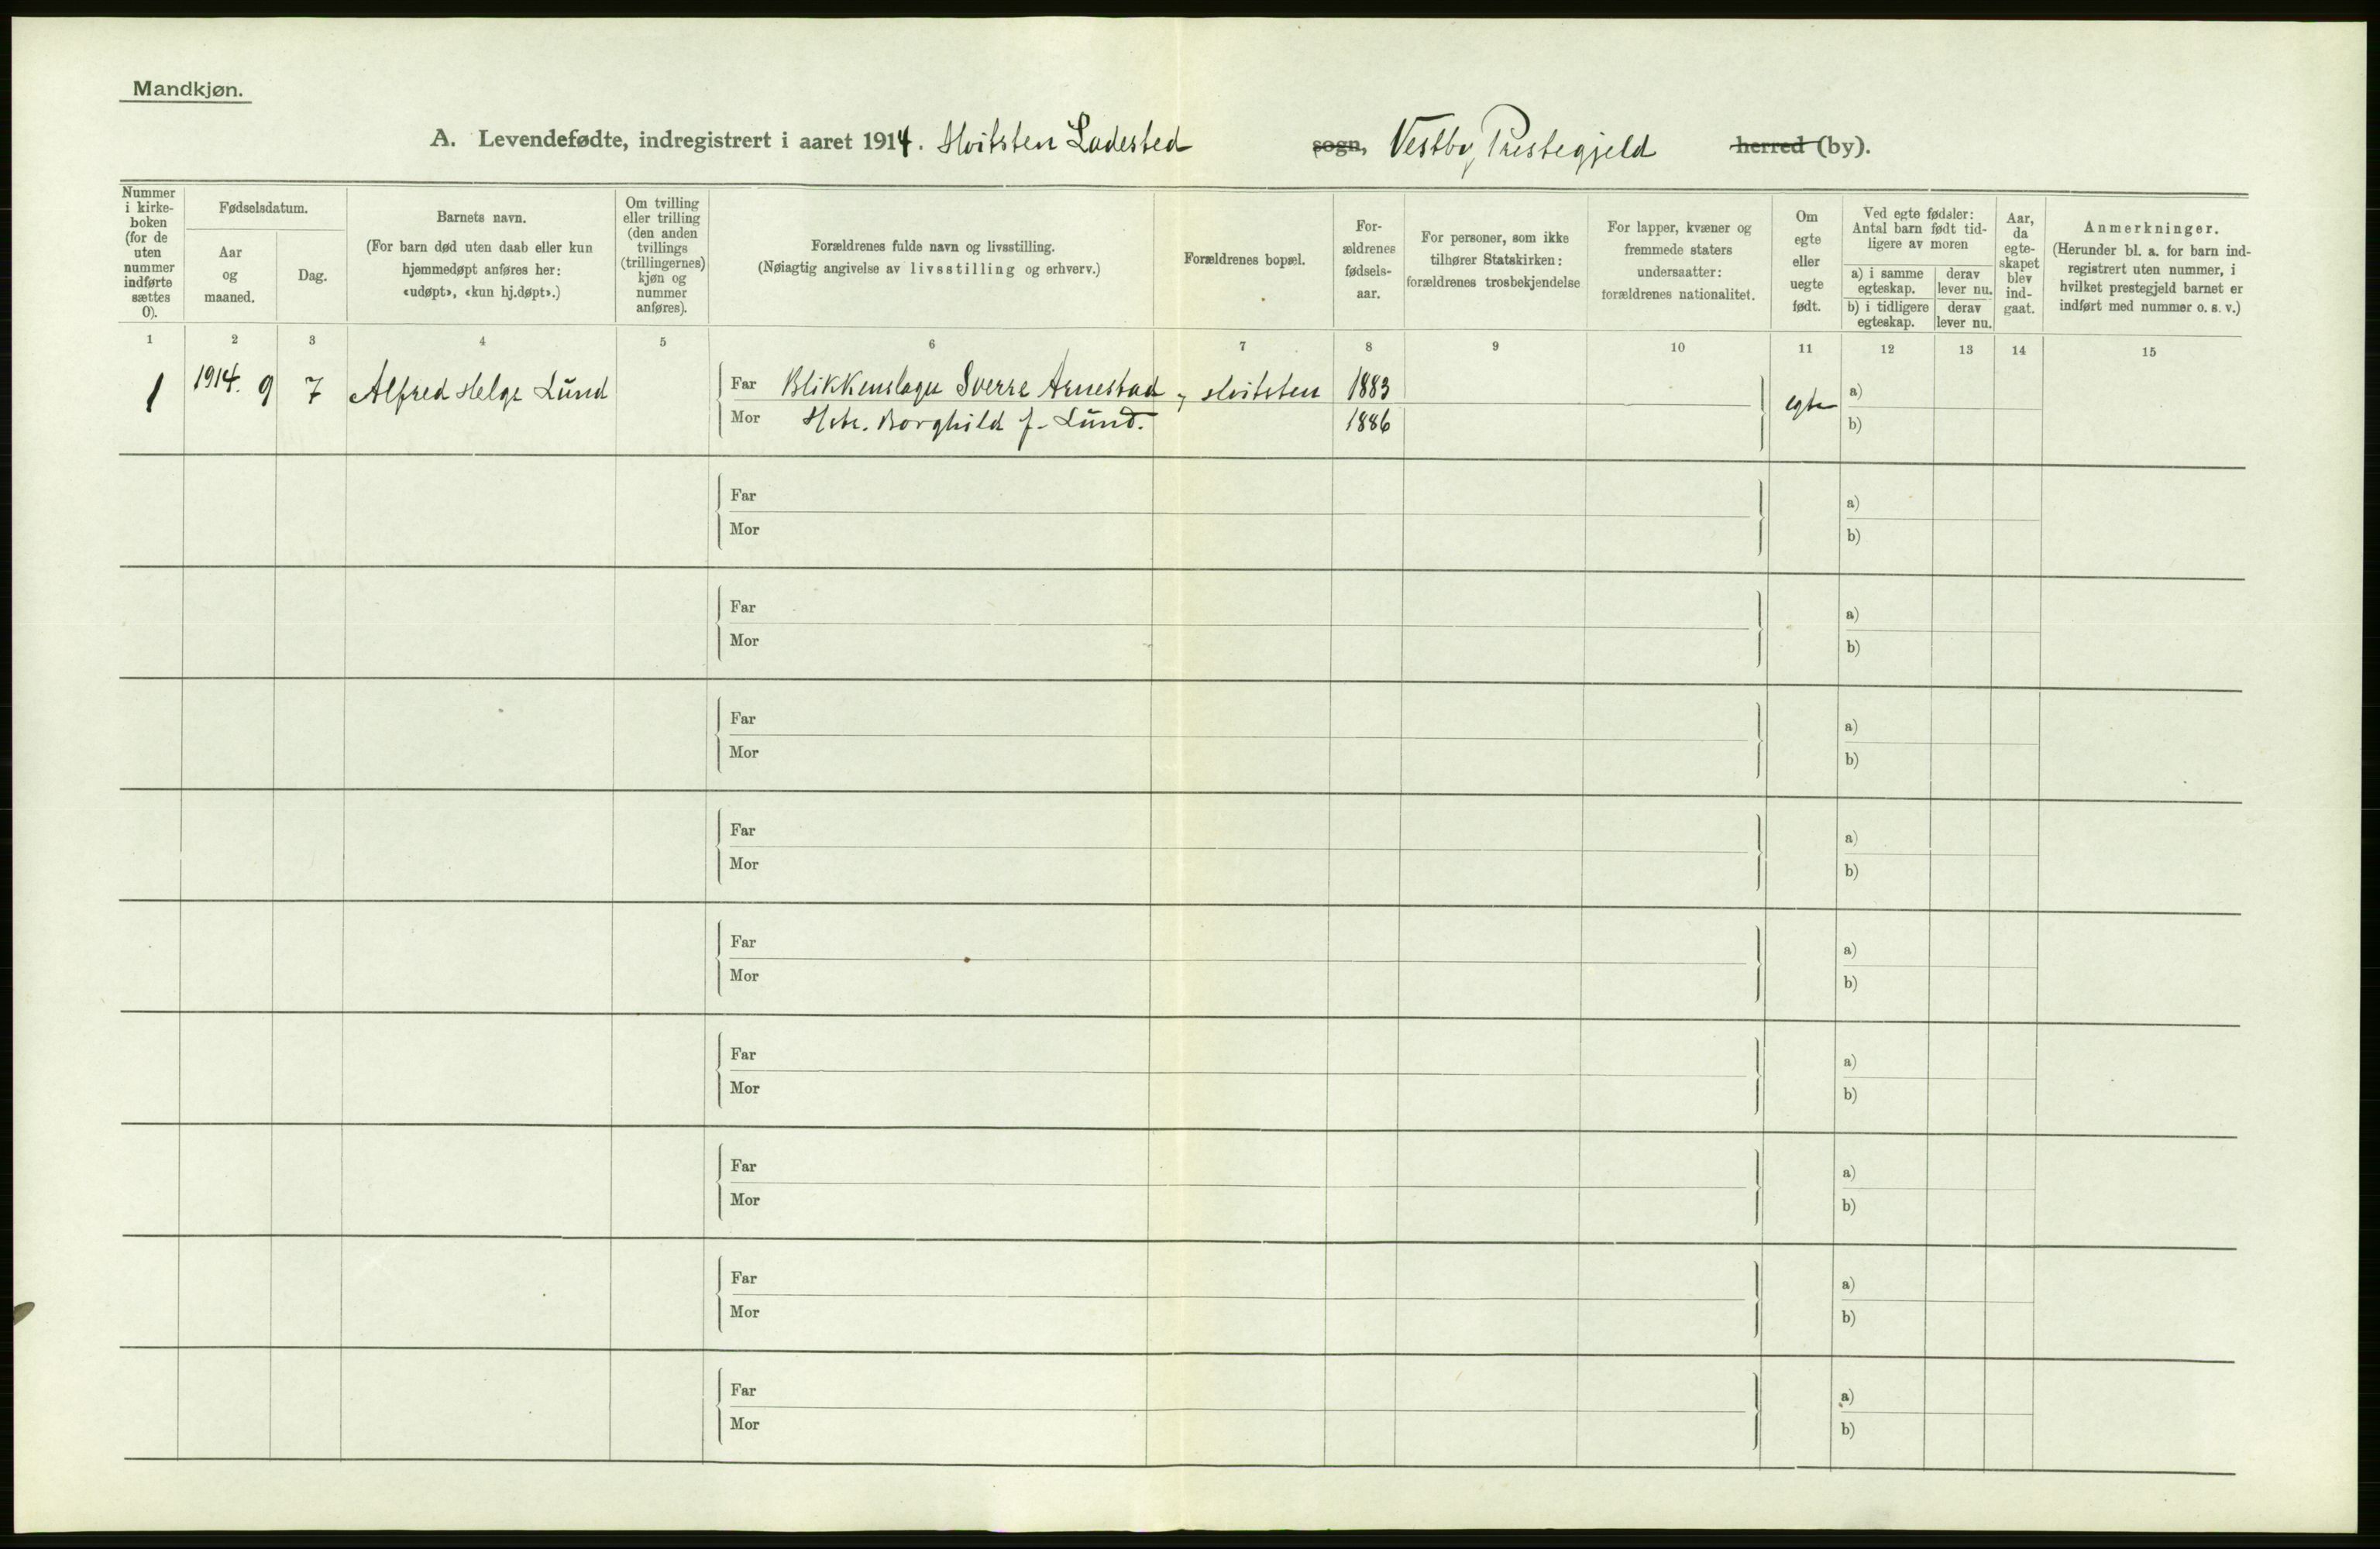 Mandkjøn.
A. Levendefødte, indregistrert i aaret 1914. Hvitsten Ladested sogn, Vestby Prestegjeld herred (by).
Nummer i kirke-boken (for de uten nummer indførte sættes 0).
Fødselsdatum.
Aar og maaned.
Dag.
Barnets navn.
(For barn død uten daab eller kun hjemmedøpt anføres her: «udøpt», «kun hj.døpt».)
Om tvilling eller trilling (den anden tvillings (trillingernes) kjøn og nummer anføres).
Forældrenes fulde navn og livsstilling.
(Nøiagtig angivelse av livsstilling og erhverv.)
Forældrenes bopæl.
For-ældrenes fødsels-aar.
For personer, som ikke tilhører Statskirken: forældrenes trosbekjendelse
For lapper, kvæner og fremmede staters undersaatter: forældrenes nationalitet.
Om egte eller uegte født.
Ved egte fødsler: Antal barn født tid-ligere av moren
a) i samme egteskap.
derav lever nu.
b) i tidligere egteskap.
derav lever nu.
Aar, da egte-skapet blev ind-gaat.
Anmerkninger.
(Herunder bl. a. for barn ind-registrert uten nummer, i hvilket prestegjeld barnet er indført med nummer o. s. v.)
1 2 3 4 5 6 7 8 9 10 11 12 13 14 15
1 1914. 9 7 Alfred Helge Lund Far Blikkenslager Sverre Arnestad, Hvitsten 1883 egte a)
Mor Hstr. Borghild f. Lund. 1886 b)
Far a)
Mor b)
Far a)
Mor b)
Far a)
Mor b)
Far a)
Mor b)
Far a)
Mor b)
Far a)
Mor b)
Far a)
Mor b)
Far a)
Mor b)
Far a)
Mor b)